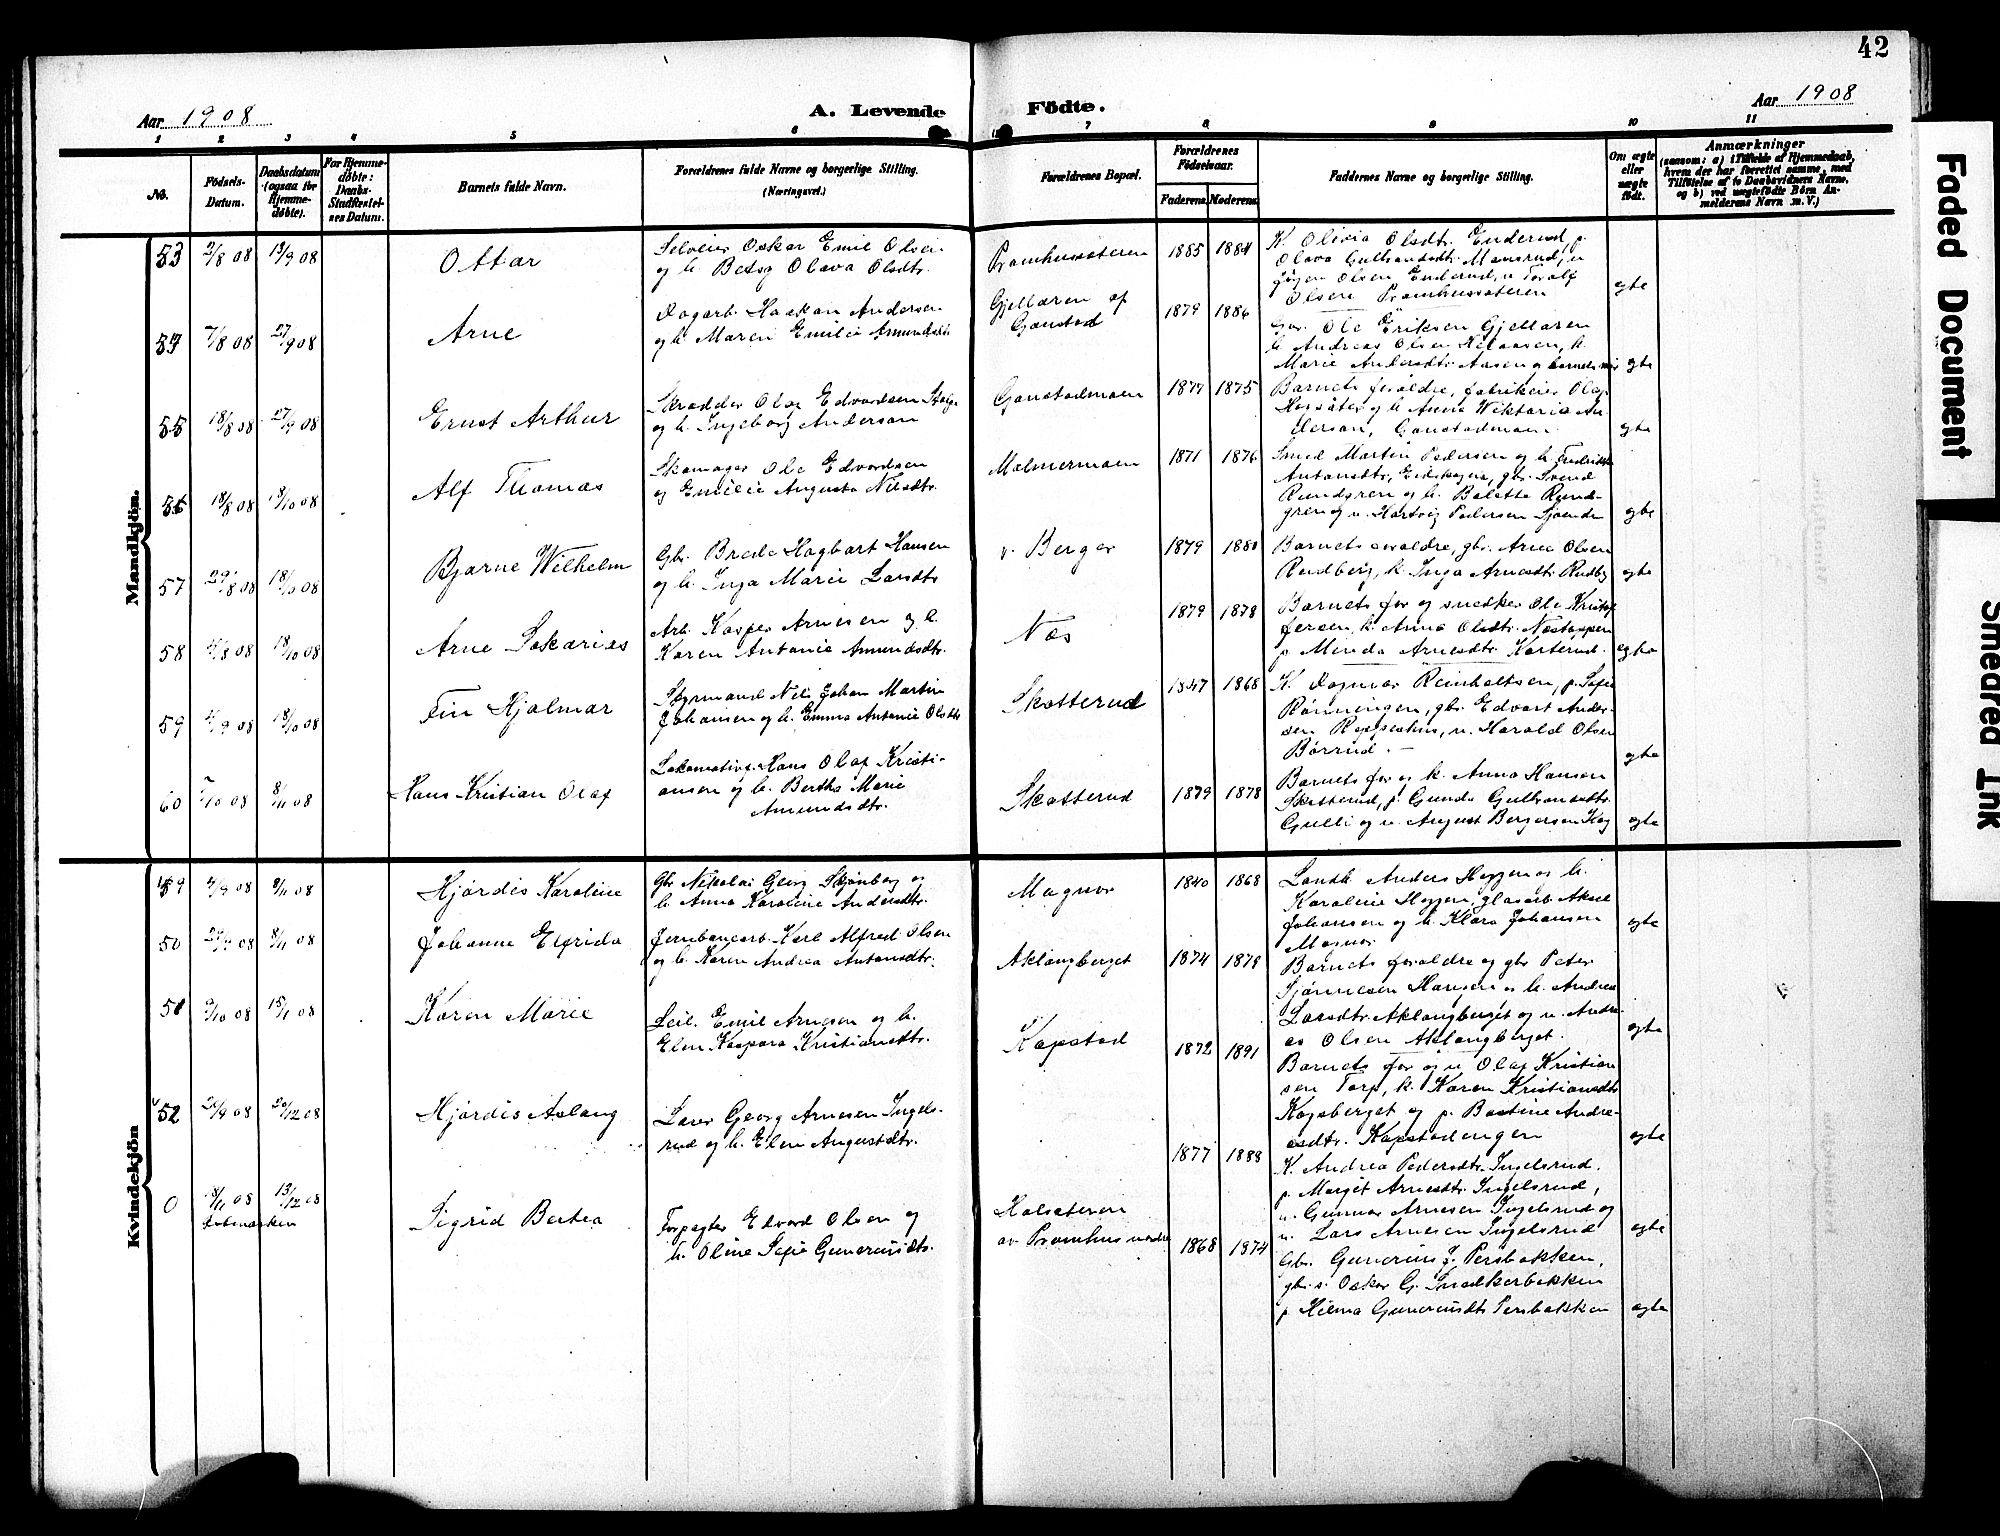 42
Aar 1908
A. Levende
Födte.
Aar 1908
1 2 3 4 5 6 7 8 9 10 11
No.
Födsels-
Datum.
Daabsdatum
(ogsaa for
Hjemme-
döbte).
For Hjemme-
döbte:
Daabs-
Stadfæstel-
ses Datum.
Barnets fulde Navn.
Forældrenes fulde Navne og borgerlige Stilling.
(Næringsvei.)
Forældrenes Bopæl.
Forældrenes
Födselsaar.
Faderens. Moderens.
Faddernes Navne og borgerlige Stilling.
Om ægte
eller
uægte
födt.
Anmærkninger
(saasom: a) i Tilfælde af Hjemmedaab,
hvem der har forrettet samme, med
Tilföielse af to Daabsvidners Navne,
og b) ved uægtefödte Börn An-
melderens Navn m. V.)
Mandkjön.
53 2/8 08 13/9 08
Ottar
Selveier Oskar Emil Olsen
og h. Betsy Olava Olsdtr.
Promhussæteren
1885 1884
K. Olivia Olsdtr. Enderud, p.
Olava Gulbrandsdtr. Mansrud, u
Jørgen Olsen Enderud, u Toralf
Olsen Promhussæteren
egte
54 7/8 08 27/9 08
Arne
Dagarb. Haakon Andersen
og h. Maren Emilie Amundsdtr
Gjellaren af
Gaustad
1879 1886
Gbr. Ole Eriksen Gjellaren
h. Andreas Olsen
Marie Andersdtr. Aasen og barnets mor
egte
55 18/8 08 27/9 08
Ernst Arthur
Skrædder Olof Edvardsen
og h. Ingeborg Anderson
Gaustadmoen
1877 1875
Barnets forældre, fabrikeier Olaf
og h. Anna Wiktoria An-
derson, Gaustadmoen.
egte
56 18/8 08 18/10 08
Alf Thomas
Skomager Ole Edvardsen
og Emilie Augusta Nilsdtr.
Malmermoen
1871 1876
Smed Martin Pedersen og h. Fredrikke
Antonsdtr, Eidskogen, gbr. Svend
Rundgren og h. Balette Rund-
gren og u. Hartvig Pedersen
egte
57 29/8 08 18/10 08
Bjarne Wilhelm
Gbr. Brede Hagbart Hansen
og h. Inga Marie Larsdtr
v. Berger
1879 1880
Barnets forældre, gbr. Arne Olsen
Rudberg, k. Inga Arnesdtr. Rudbg
egte
58 /8 08 18/10 08
Arne Sakarias
Arb. Kasper Arnesen og h.
Karen Antonie Amundsdtr.
Næs
1879 1878
Barnets far og snedker Ole Kristof
fersen, k. Anna Olsdtr. Næstoppen
p. Minda Arnesdtr. Karterud.
egte
59 /9 08 18/10 08
Fin Hjalmar
Styrmand Nils Johan Martin
Johansen og h. Emma Antonie Olsdtr
Skotterud
1847 1868
K. Dagmar Reinholtsen, p. Sofie
Rønningen, gbr. Edvart Ander-
sen Rapseshus, u. Harald Olsen
Børrud. —
egte
60 7/10 08 8/11 08
Hans Kristian Olaf
Lokomotivf. Hans Olaf Kristi-
ansen og h. Bertha Marie
Amundsdtr.
Skotterud
1879 1878
Barnets far og k. Anna Hansen
Skotterud, p. Gunda Gulbrandsdtr.
Gulli og u. August Bergersen Kog
egte
Kvindekjön
49 9/9 08 8/11 08
Hjørdis Karoline
Gbr Nikolai Georg Skjønberg og
h. Anna Karoline Andersdtr.
Magnor
1840 1868
Landh. Anders Heggen og h.
Karoline Heggen, glasarb. Aksel
Johansen og h. Klara Johansen
Magnor
egte
50 08 8/11 08
Johanne Elfrida
Jernbanearb. Karl Alfred Olsen
og h. Karen Andrea Antonsdtr.
Aklangberget
1874 1879
Barnets forældre og gbr Peter
Hansen og h. Andrea
Larsdtr. Aklangberget og u. Andre-
as Olsen Aklangberget.
egte
51 9/10 08 15/11 08
Karen Marie
Leil. Emil Arnesen og h.
Elen Kaspara Kristiansdtr.
Kapstad
1872 1891
Barnets far og u Olaf Kristian
sen Torp, k. Karen Kristiansdtr
Kogsberget og p. Bastine Andre-
asdtr. Kapstadengen
egte
52 26/9 08 20/12 08
Hjørdis Aslaug
Lærer Georg Arnesen Ingels-
rud og h. Elen Augustdtr.
1877 1888
K. Andrea Pedersdtr. Ingelsrud,
p. Margit Arnesdtr. Ingelsrud,
u. Gunnar Arnesen Ingelsrud og
u. Lars Arnesen Ingelsrud
egte
0 18/11 08 13/12 08
Sigrid Bertea
Forpagter Edvard Olsen og
h. Oline Sofie Gunerusdtr.
Kolsæteren
av Promhus nordre
1868 1874
Gbr. Gunerius J. Persbakken,
gbr.s. Oskar G. Snedkerbakken
p Hilma Guneriusdtr Persbakken
egte
Faded Document
Smeared Ink